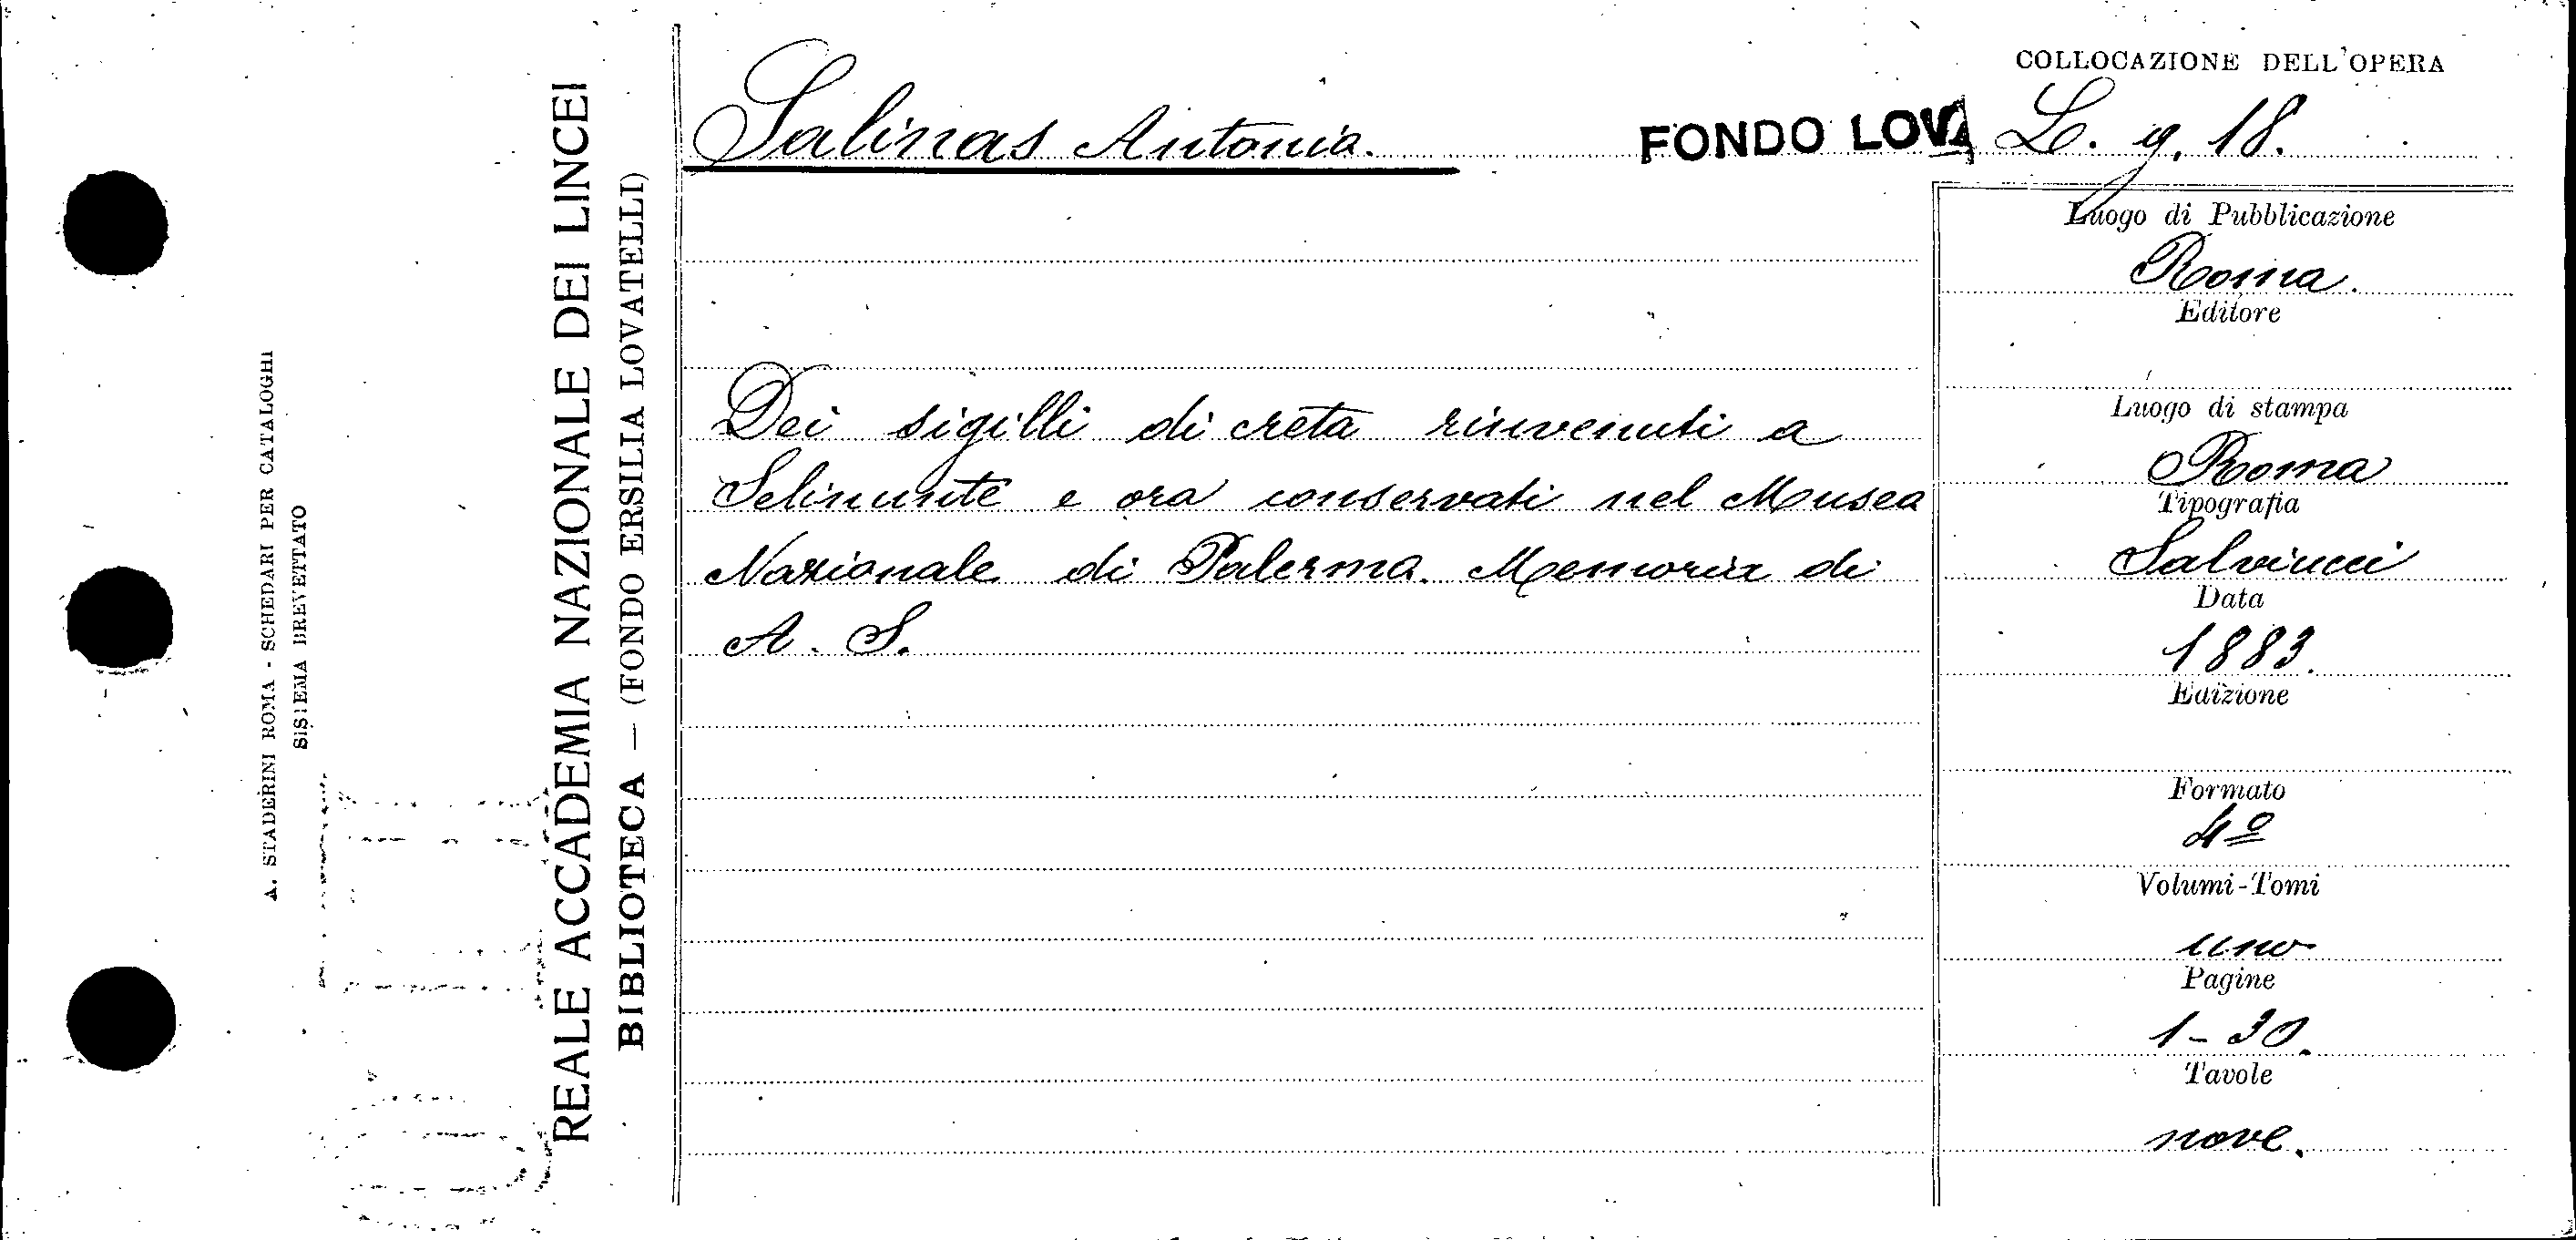 A. STADERINI ROMA - SCHEDARI PER CATALOGHI
SISTEMA BREVETTATO
REALE ACCADEMIA NAZIONALE DEI LINCEI
BIBLIOTECA — (FONDO ERSILIA LOVATELLI)
Salinas Antonio.
FONDO LOVA
COLLOCAZIONE DELL'OPERA
L. g. 18.
Dei sigilli di creta rinvenuti a
Selinunte e ora conservati nel Museo
Nazionale di Palermo. Memoria di
A. S.
Luogo di Pubblicazione
Roma.
Editore
Luogo di stampa
Roma
Tipografia
Salviucci
Data
1883.
Edizione
Formato
4º
Volumi-Tomi
uno
Pagine
1-30.
Tavole
nove.